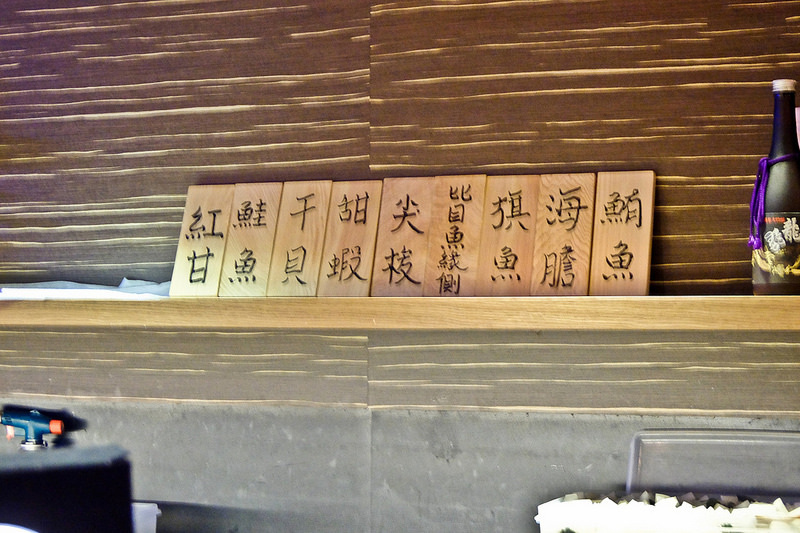 紅甘
鮭魚
干貝
甜蝦
尖梭
比目魚緣側
旗魚
海膽
鮪魚